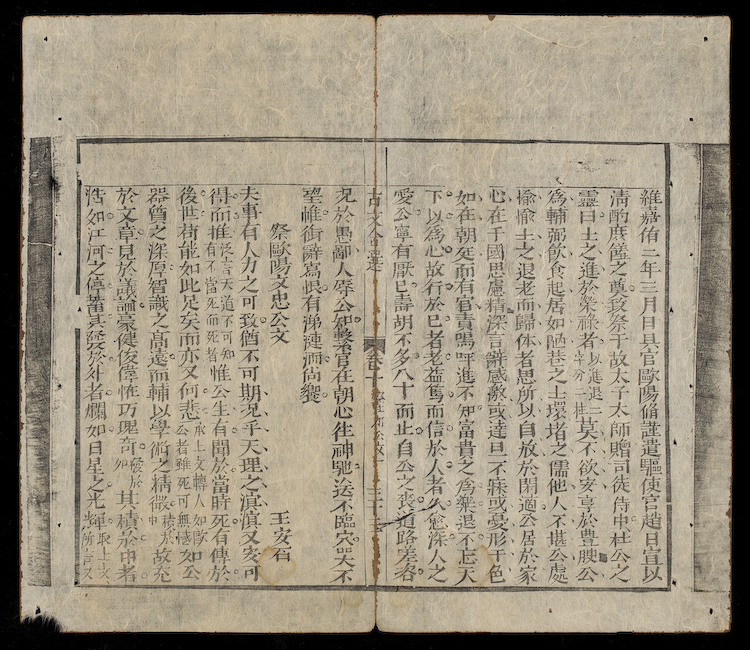 維嘉佑二年三月日具官歐陽脩謹遣驅使官趙日宣以
清酌庶羞之奠致祭于故太子太師贈司徒侍中杜公之
靈曰士之進於榮祿者以進退二字分一柱莫不欲安享於豊腴公
爲輔弼飲食起居如陋巷之士環堵之儒他人不堪公處
愉愉士之退老而歸休者思所以自放於閑適公居於家
心在于國思慮精深言辭感激或達旦不寐或憂形于色
如在朝廷而有官責嗚呼進不知富貴之爲樂退不忘天
下以爲心故行於已者老益篤而信於人者久愈深人之
愛公寧有厭已壽胡不多八十而止自公之喪道路嗟咨
古文 選 卷十 祭杜祁公文 三十三
况於愚鄙久辱公知繫官在朝心往神馳送不臨穴哭不
望帷銜辭寫恨有涕漣洏尚饗
祭歐陽文忠公文
王安石
夫事有人力之可致猶不可期况乎天理之溟漠又安可
得而推泛言天道不可知有不當死而死者惟公生有聞於當時死有傳於
後世苟能如此足矣而亦又何悲承上文轉人如歐公者雖死可無憾如公
器質之深厚智識之高遠而輔以學術之精微積於中故充
於文章見於議論豪健俊偉恠巧瑰奇發於外其積於中者
浩如江河之停蓄其發於外者爛如日星之光輝取上文所言又